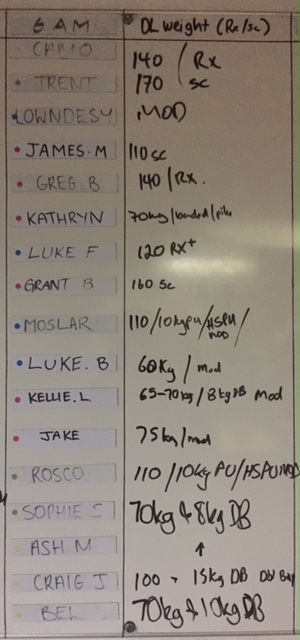 6 AM DL weight (Rx/sc)
CAMO 140 / Rx
TRENT 170 sc
LOWNDESY MOD
JAMES.M 110 sc
GREG.B 140 / Rx.
KATHRYN 70kg/banded/pike
LUKE F 120 RX+
GRANT B 160 Sc
MOSLAR 110/10kgPU/HSPU/
MOD
LUKE.B 60Kg / mod
KELLIE.L 65-70kg / 8kgDB Mod
JAKE 75kg/mod
ROSCO 110 / 10kg PU/HSPU MOD
SOPHIE S 70kg & 8kg DB
ASH M ↑
CRAIG J 100 - 15kg DB Dbl
BEL 70kg & 10kg DB